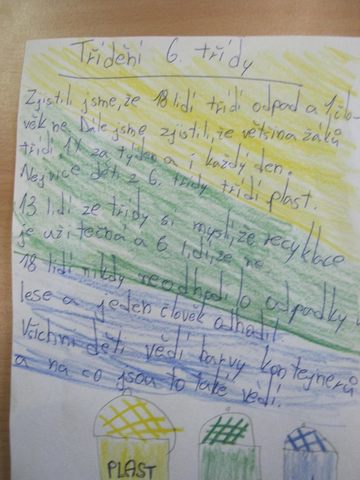 Třídění 6. třídy
Zjistili jsme, že 18 lidí třídí odpad a 1 člo-
věk ne. Dále jsme zjistili, že většina žáků
třídí 1x za týden a i každý den.
Nejvíce dětí z 6. třídy třídí plast.
13 lidí ze třídy si myslí, že recyklace
je užitečná a 6 lidí, že ne
18 lidí nikdy neodhodilo odpadky v
lese a jeden člověk odhodil.
Všichni děti vědí barvy kontejnerů
a na co jsou to také vědí.
PLAST